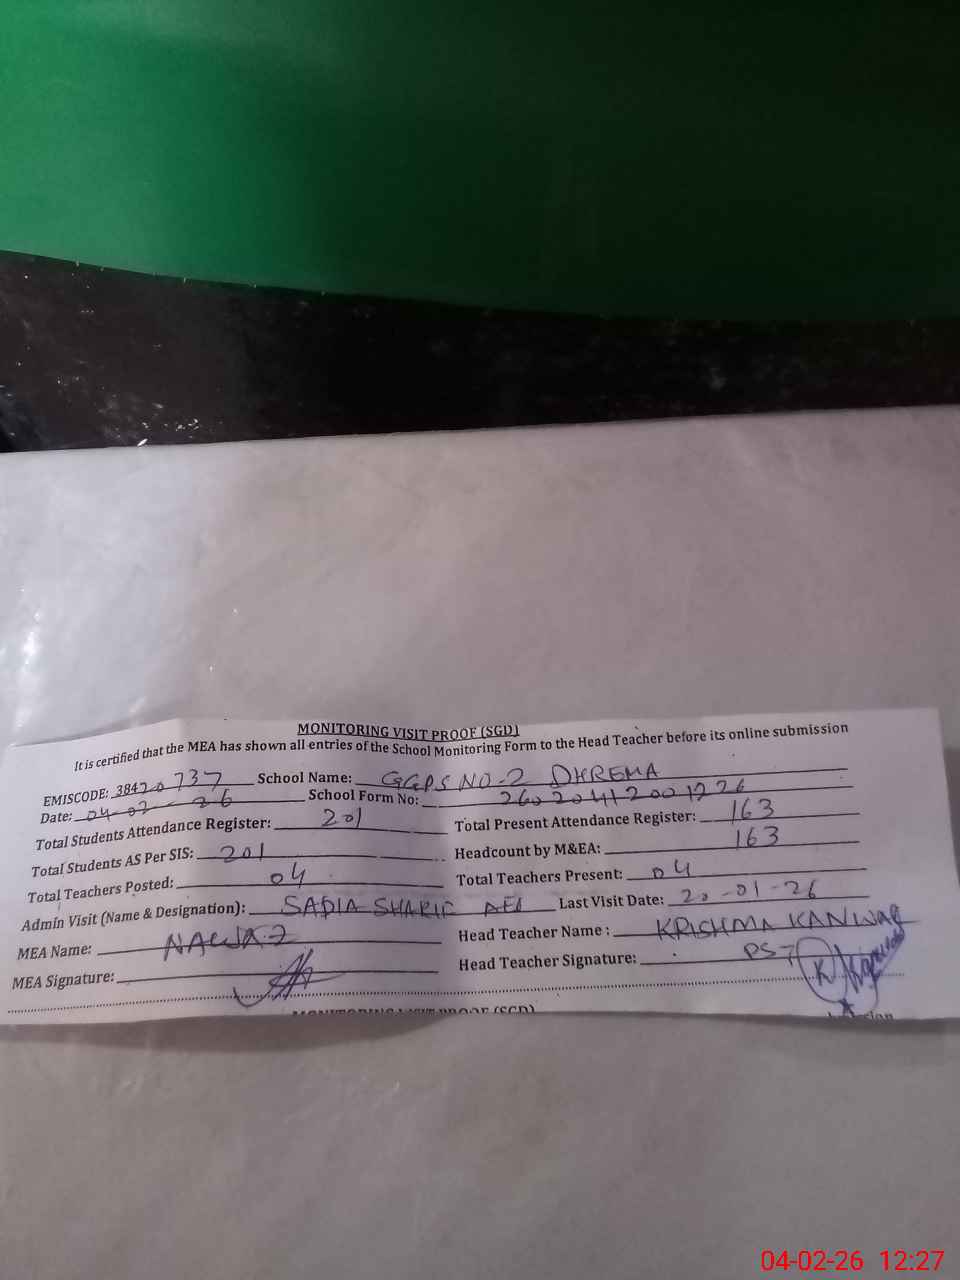 MONITORING VISIT PROOF (SGD)
It is certified that the MEA has shown all entries of the School Monitoring Form to the Head Teacher before its online submission
EMISCODE: 38420737 School Name: GGPS NO-2 DHREMA
Date: 04-02-26 School Form No: 26020412001226
Total Students Attendance Register: 201 Total Present Attendance Register: 163
Total Students AS Per SIS: 201 Headcount by M&EA: 163
Total Teachers Posted: 04 Total Teachers Present: 04
Admin Visit (Name & Designation): SADIA SHARIF AEO Last Visit Date: 20-01-26
MEA Name: NAWAZ Head Teacher Name: KRISHMA KANWAL
MEA Signature: Head Teacher Signature: PST
MONITORING VISIT PROOF (SGD)
04-02-26 12:27